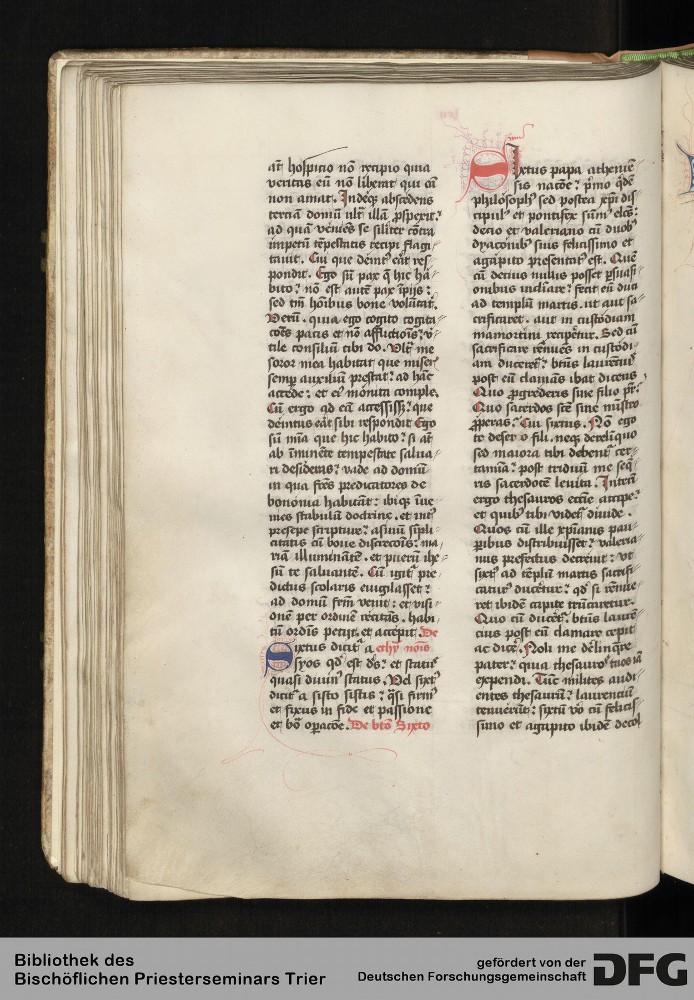 at̄ hospicio nō recipio quia
veritas eū nō liberat qui eā
non amat. Indeq̄ abscedens
terciam domū ult̄ illā ꝓspexit
ad quā veniēs se silīter cōtra
impetū tēpestatis recipi flagi
tauit. Cui que deint̄ erāt res
pondit. Ego sū pax q̄ hic ha
bito: nō est autē pax īpijs:
sed tm̄ hoībus bone volūtat̄.
Verū. quia ego cogito cogita
cōes pacis et nō afflictiōis: v
tile consiliū tibi do. Vlt̄ me
soror mea habitat que miser̄
semꝑ auxiliū prestat: ad hāc
accede: et ei moīta comple.
Cū ergo ad eā accessissȝ: que
deintus erāt sibi respondit Ego
sū mīa que hic habito: si at̄
ab īminēte tempestate salua
ri desideras: vade ad domū
in qua fr̄es predicatores de
bononia habitāt: ibiqȝ īue
nies stabulū doctrine. et int̄
presepe scripture: asinū sīpli
citatis cū boue discrecōis: ma
riā illuminātē. et puerū ihe
sū te saluantē. Cū igit̄ pre
dictus scolaris euigilasset:
ad domū fr̄m venit: et visi
onē per ordinē recitās. habi
tū ordīs petijt. et accepit. De
Sixtus dicit̄ a ethȳ noīs
syos qd̄ est dȝ: et status
quasi diuin9 status. Vel sixt9
dicit̄ a sisto sistis: q̄si firm9
et fixus in fide et passione
et bōa oꝑacōe. De btō Sixto
Sixtus papa atheniē
sis nacōe: p̄mo q̄dē
philosoph9 sed postea xp̄i dis
cipul9 et pontifex sūm9 elc̄s:
decio et valeriano cū duob9
dyaconib9 suis felicissimo et
agapito presentat9 est. Quē
cū decius nullis posset ꝑsuasi
onibus inclīare: fecit eū duci
ad templū martis. ut aut sa
crificaret. aut in custodiam
mamortini reciperet̄. Sed cū
sacrificare rēnuēs in custodi
am duceret̄: btūs laurenti9
post eū clamās ibat dicens
Quo ꝓgrederis sine filio pr̄:
Quo sacerdos scē sine mīstro
ꝓperas: Cui sixtus. Nō ego
te desero fili. neqȝ derelīquo
sed maiora tibi debent̄ cer
tamīa: post triduū me seq̄
ris sacerdotē leuita. Interī
ergo thesauros eccīe accipe:
et quib9 tibi videt̄ diuide.
Quos cū ille xp̄ianis pau
ꝑibus distribuisset: valeria
nus prefectus decreuit: vt
sixt9 ad tēplū martis sacrifi
catur9 ducetur: qd̄ si rēnue
ret ibidē capite trūcaretur.
Quo cū ducet̄: btūs laurē
cius post eū clamare cepit
ac dicē. Noli me derlinq̄re
pater: quia thesauros tuos iā
expendi. Tūc milites audi
entes thesaurū: laurenciū
tenuerūt: sixtū v̄o cū felicis
simo et agapito ibidē decol
Bibliothek des
Bischöflichen Priesterseminars Trier
gefördert von der
Deutschen Forschungsgemeinschaft
DFG